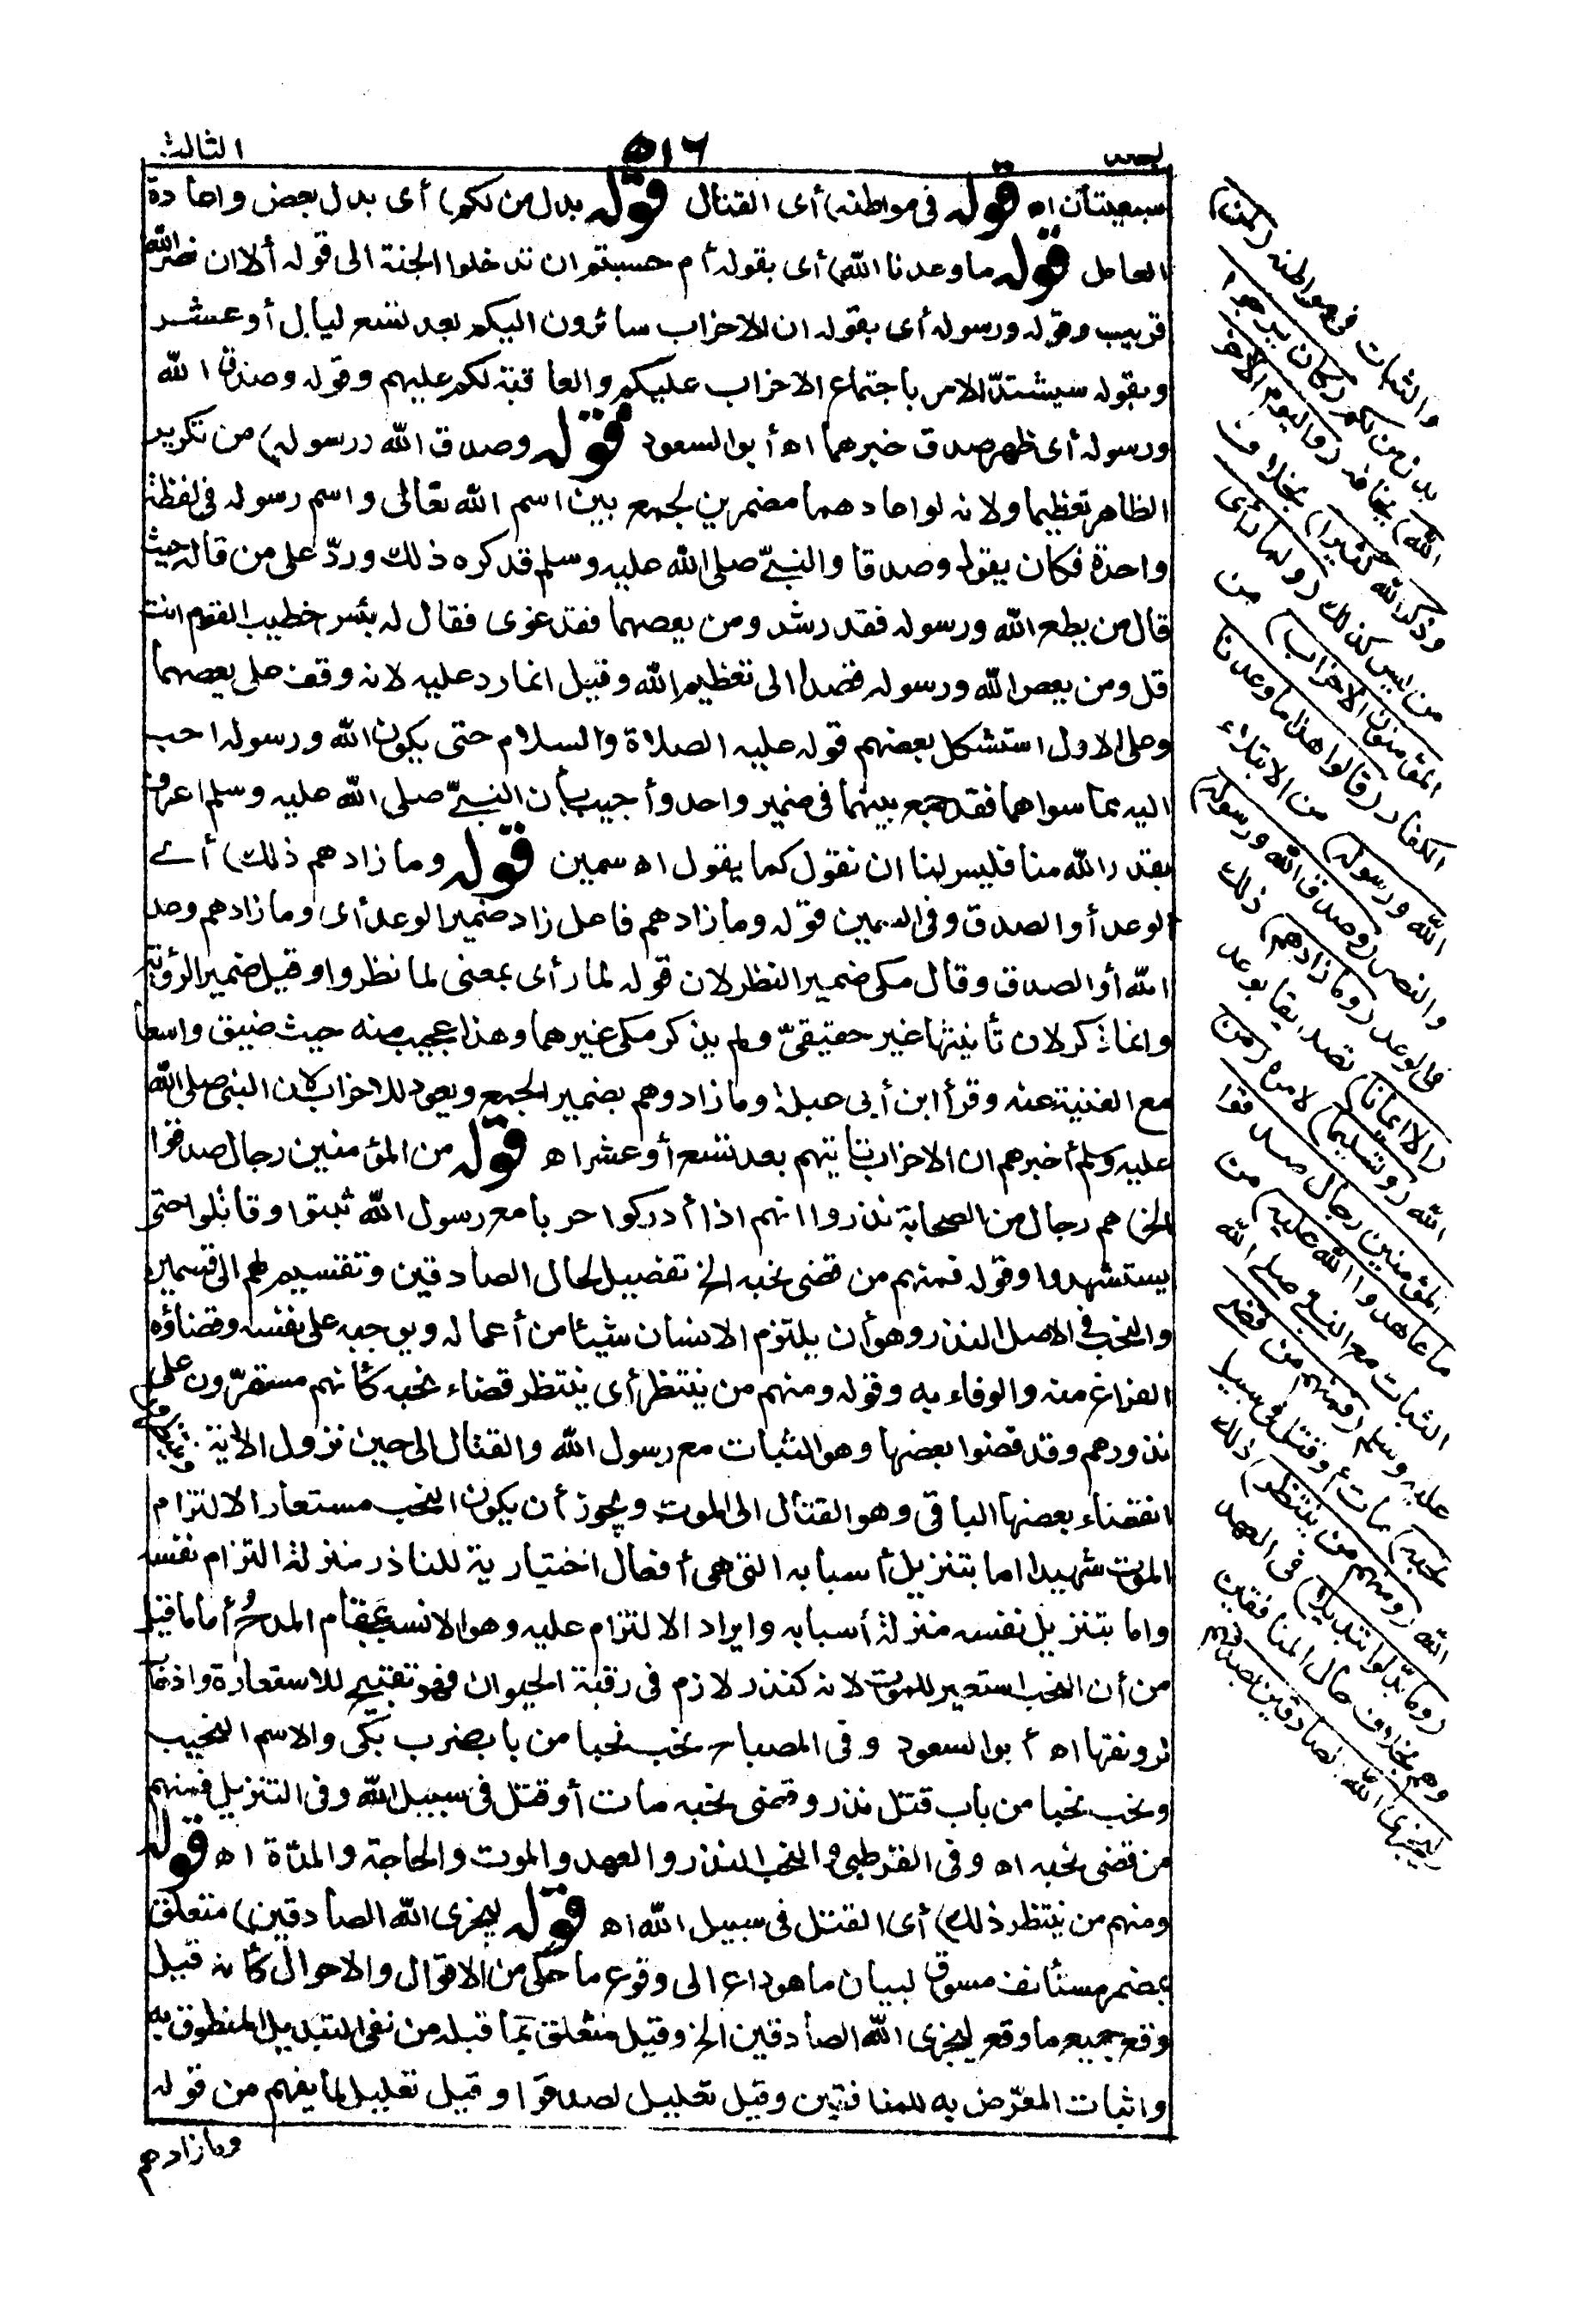 الثالث
٥١٦
سبعيتان اه قوله في مواطنه) أى القتال قوله بدل من لكم) أى بدل بعض واعادة
العامل قوله ما وعدنا الله) أى بقوله أم حسبتم ان تدخلوا الجنة الى قوله ألا ان نصر الله
قريب وقوله ورسوله أى بقوله ان الاحزاب سائرون اليكم بعد تسع ليال أو عشر
وبقوله سيشتدّ الامر باجتماع الاحزاب عليكم والعاقبة لكم عليهم وقوله وصدق الله
ورسوله أى ظهر صدق خبرهما اه أبو السعود قوله وصدق الله ورسوله) من تكرير
الظاهر تعظيما ولانه لو اعادهما مضمرين لجمع بين اسم الله تعالى واسم رسوله فى لفظة
واحدة فكان يقول وصدقا والنبىّ صلى الله عليه وسلم قد كره ذلك وردّ على من قاله حيث
قال من يطع الله ورسوله فقد رشد ومن يعصهما فقد غوى فقال له بئس خطيب القوم انت
قل ومن يعص الله ورسوله قصدا الى تعظيم الله وقيل انما رد عليه لانه وقف على يعصهما
وعلى الاول استشكل بعضهم قوله عليه الصلاة والسلام حتى يكون الله ورسوله احب
اليه مما سواهما فقد جمع بينهما فى ضمير واحد وأجيب بأن النبىّ صلى الله عليه وسلم اعرف
بقدر الله منا فليس لنا ان نقول كما يقول اه سمين قوله وما زادهم ذلك) أى
الوعد أو الصدق وفى السمين قوله وما زادهم فاعل زاد ضمير الوعد أى وما زادهم وعد
الله أو الصدق وقال مكى ضمير النظر لان قوله لما رأى بمعنى لما نظروا وقيل ضمير الرؤية
وانما ذكر لان تأنيثها غير حقيقىّ ولم يذكر مكى غيرهما وهذا عجيب منه حيث ضيق واسعا
مع الغنية عنه وقرأ ابن أبى عبلة وما زادوهم بضمير الجمع ويعود للاحزاب لان النبى صلى الله
عليه وسلم أخبرهم ان الاحزاب تأتيهم بعد تسع أو عشر اه قوله من المؤمنين رجال صدقوا
الخ) هم رجال من الصحابة نذروا انهم اذا أدركوا حربا مع رسول الله ثبتوا وقاتلوا حتى
يستشهدوا وقوله فمنهم من قضى نحبه الخ تفصيل لحال الصادقين وتقسيم لهم الى قسمين
والنحب فى الاصل النذر وهو أن يلتزم الانسان شيئا من أعماله ويوجبه على نفسه وقضاؤه
الفراغ منه والوفاء به وقوله ومنهم من ينتظر أى ينتظر قضاء نحبه كأنهم مستمرّون على
نذورهم وقد قضوا بعضها وهو الثبات مع رسول الله والقتال الى حين نزول الآية
انقضاء بعضها الباقى وهو القتال الى الموت ويجوز أن يكون النحب مستعارا لالتزام
الموت شهيدا اما بتنزيل أسبابه التى هى أفعال اختيارية للناذر منزلة التزام نفسه
واما بتنزيل نفسه منزلة أسبابه وايراد الالتزام عليه وهو الانسب بمقام المدح أما ما قيل
من أن النحب استعير للموت لانه كنذر لازم فى رقبة الحيوان فهو تقبيح للاستعارة واذهاب
لرونقها اه أبو السعود وفى المصباح نحب نحبا من باب ضرب بكى والاسم النحيب
ونحب نحبا من باب قتل نذر وقضى نحبه مات أو قتل فى سبيل الله وفى التنزيل فمنهم
من قضى نحبه اه وفى القرطبى والنحب النذر والعهد والموت والحاجة والمدّة اه قوله
ومنهم من ينتظر ذلك) أى القتل فى سبيل الله اه قوله ليجزى الله الصادقين) متعلق
بمضمر مستأنف مسوق لبيان ما هو داع الى وقوع ما حكى من الاقوال والاحوال كأنه قيل
وقع جميع ما وقع ليجزى الله الصادقين الخ وقيل متعلق بما قبله من نفى التبديل المنطوق به
واثبات المعرّض به للمنافقين وقيل تعليل لصدقوا وقيل تعليل لما يفهم من قوله
وما زادهم
والثبات فى مواطنه (لمن)
بدل من لكم (كان يرجوا
الله) يخافه (واليوم الآخر
وذكر الله كثيرا) بخلاف
من ليس كذلك (ولما رأى
المؤمنون الاحزاب) من
الكفار (قالوا هذا ما وعدنا
الله ورسوله) من الابتلاء
والنصر (وصدق الله ورسوله)
فى الوعد (وما زادهم) ذلك
(الا ايمانا) تصديقا بوعد
الله (وتسليما) لامره (من
المؤمنين رجال صدقوا
ما عاهدوا الله عليه) من
الثبات مع النبى صلى الله
عليه وسلم (فمنهم من قضى
نحبه) مات أو قتل فى سبيل
الله (ومنهم من ينتظر) ذلك
(وما بدّلوا تبديلا) فى العهد
وهم بخلاف حال المنافقين
(ليجزى الله الصادقين بصدقهم